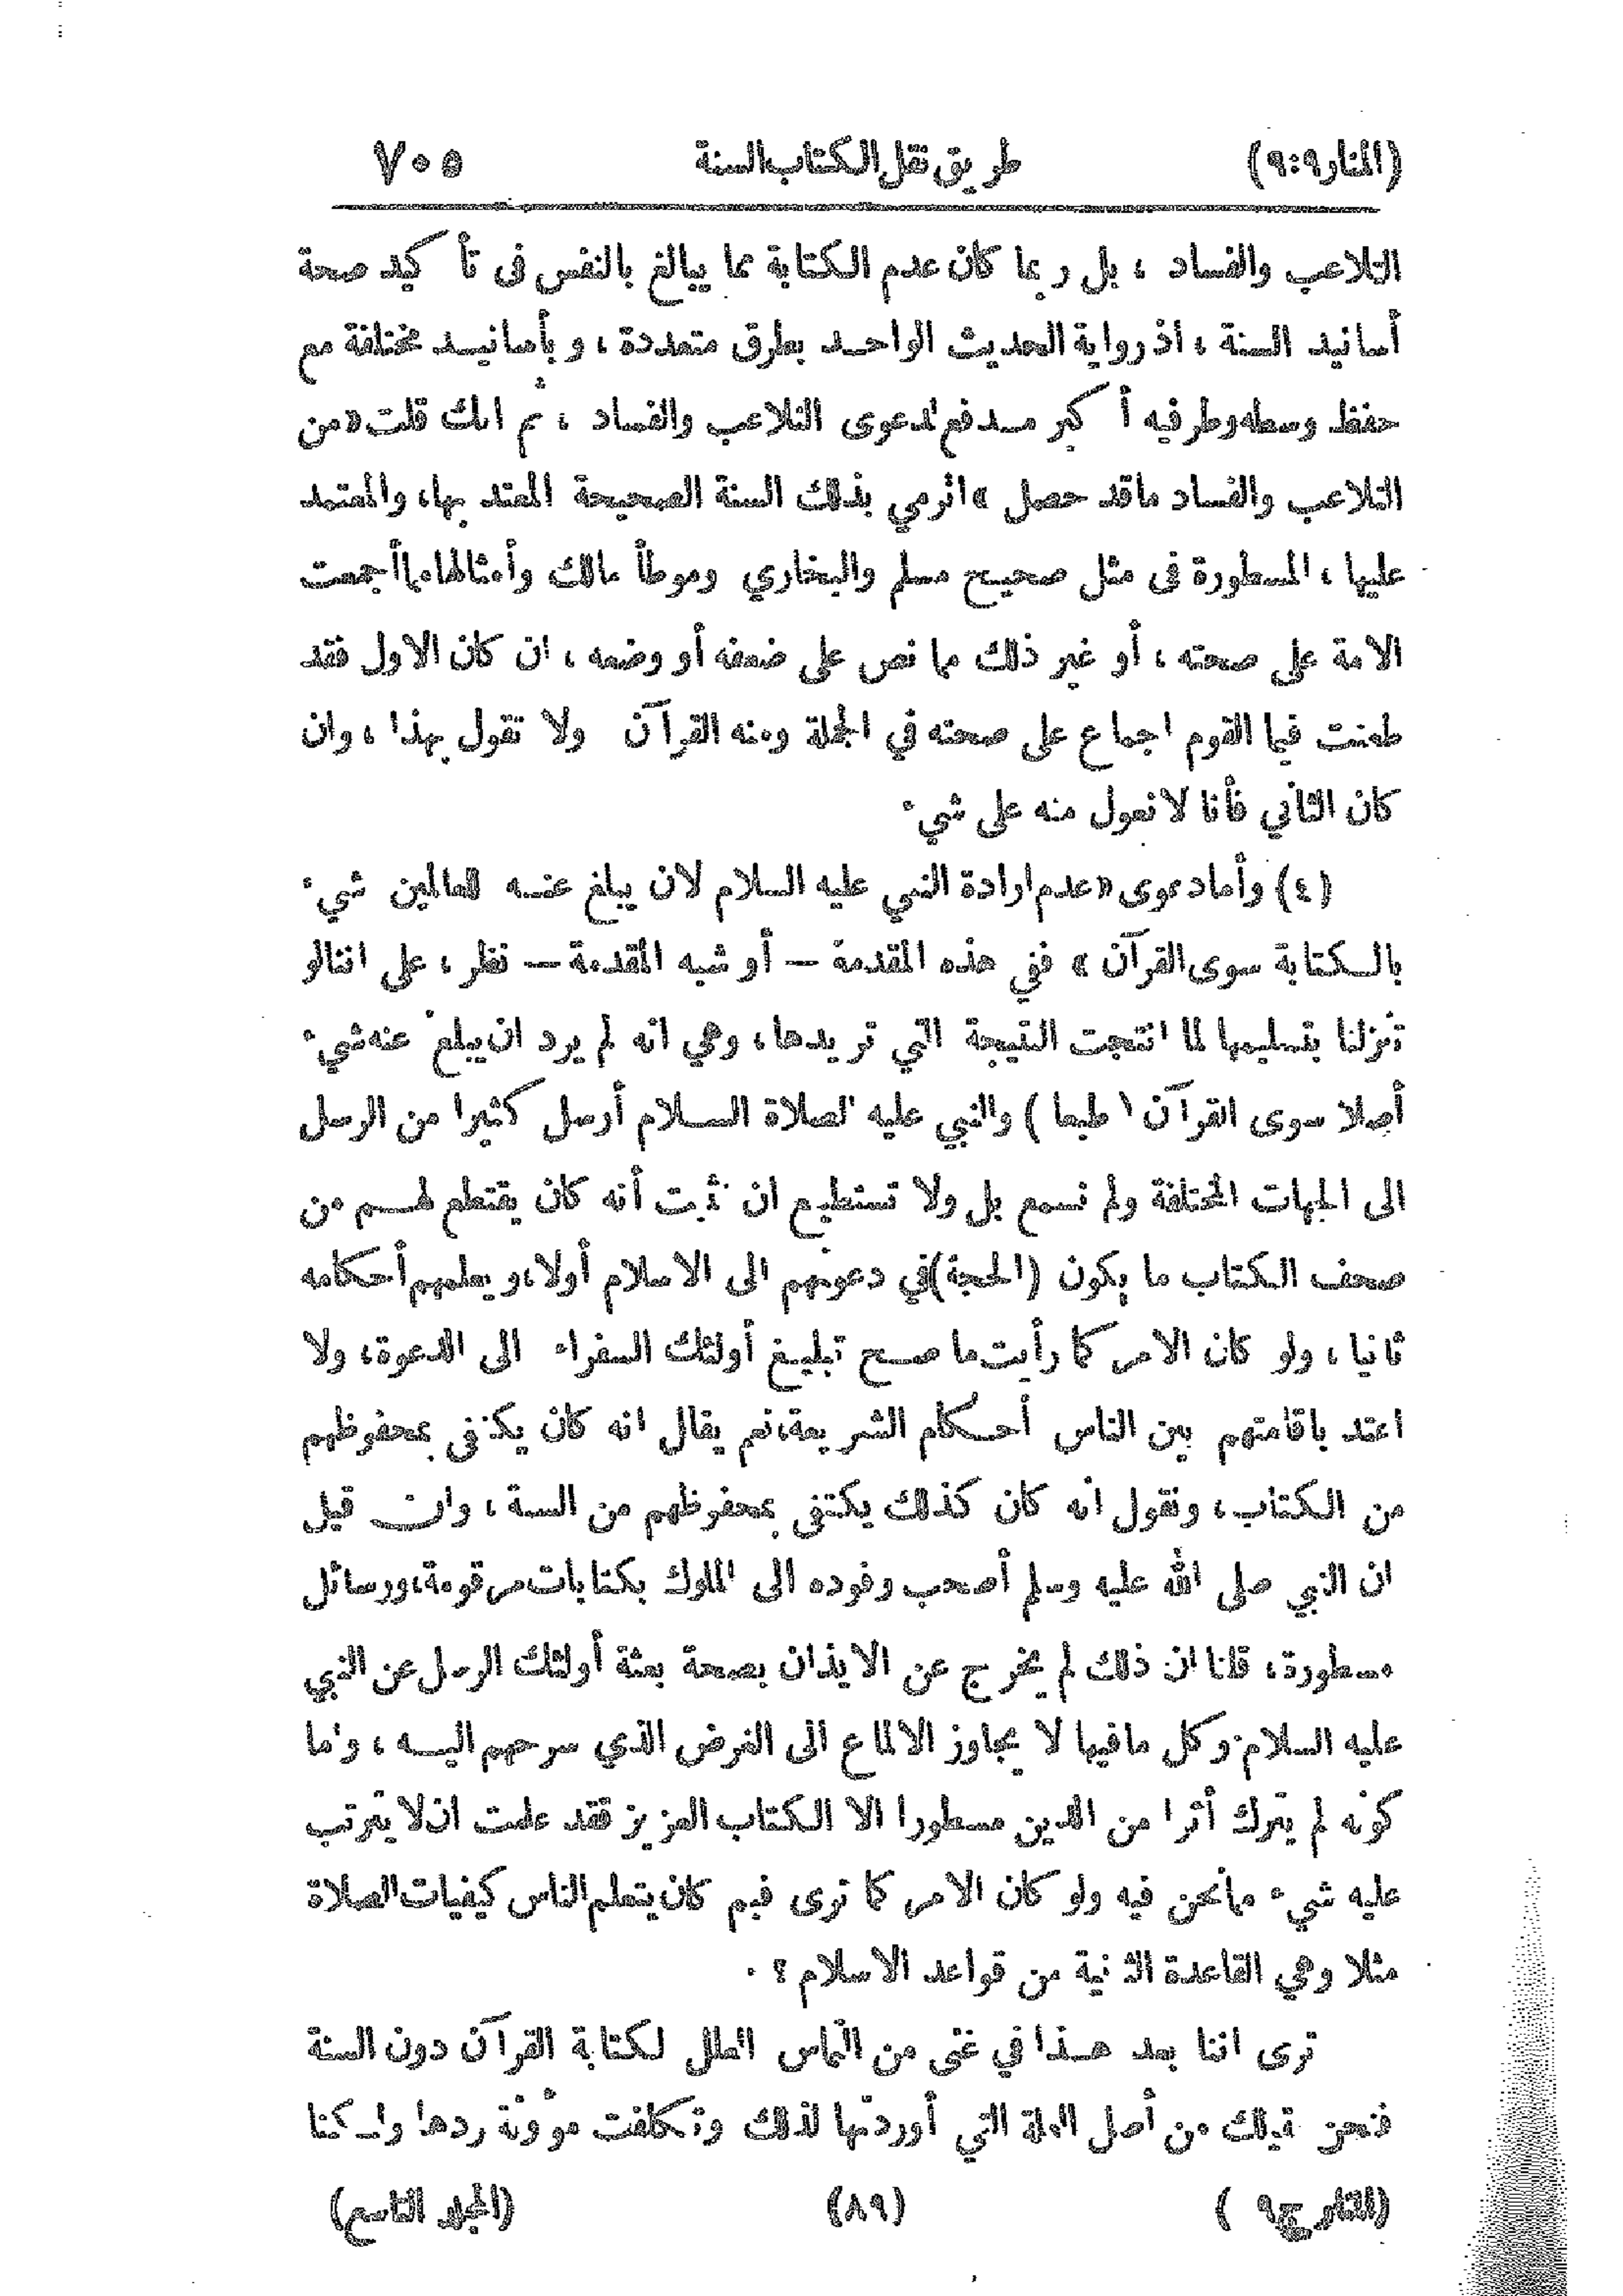 (المنار ٩:٩) طريق نقل الكتاب السنة ٧٠٥
التلاعب والفساد ، بل ربما كان عدم الكتابة مما يبالغ بالنفس فى تأكيد صحة
أسانيد السنة ، اذ رواية الحديث الواحد بطرق متعددة ، وبأسانيد مختلفة مع
حفظ وسطه وطرفيه أكبر مدفع لدعوى التلاعب والفساد ، ثم انك قلت « من
التلاعب والفساد ماقد حصل » اترمي بذلك السنة الصحيحة المعتد بها ، والمعتمد
عليها ، المسطورة فى مثل صحيح مسلم والبخاري وموطأ مالك وأمثالها مما أجمعت
الامة على صحته ، أو غير ذلك مما نص على ضعفه أو وضعه ، ان كان الاول فقد
طعنت فيما القوم اجماع على صحته في الجملة ومنه القرآن ولا تقول بهذا ، وان
كان الثاني فأنا لا نعول منه على شيء
(٤) وأما دعوى « عدم ارادة النبي عليه السلام لان يبلغ عنه للعالمين شيء
بالكتابة سوى القرآن » ففي هذه المقدمة — أو شبه المقدمة — نظر ، على اننا لو
تنزلنا بتسليمها لما انتجت النتيجة التي تريدها ، وهي انه لم يرد ان يبلغ عنه شيء
أصلا سوى القرآن ( طبعا ) والنبي عليه الصلاة السلام أرسل كثيرا من الرسل
الى الجهات المختلفة ولم نسمع بل ولا تستطيع ان تثبت أنه كان يقتطع لهم من
صحف الكتاب ما يكون (الحجة) في دعوتهم الى الاسلام أولا ، ويعلمهم أحكامه
ثانيا ، ولو كان الامر كما رأيت ما صح تبليغ أولئك السفراء الى الدعوة ، ولا
اعتد باقامتهم بين الناس أحكام الشريعة ، نعم يقال انه كان يكتفي بمحفوظهم
من الكتاب ، ونقول انه كان كذلك يكتفي بمحفوظهم من السنة ، وان قيل
ان النبي صلى الله عليه وسلم أصحب وفوده الى الملوك بكتابات مرقومة ، ورسائل
مسطورة ، قلنا ان ذلك لم يخرج عن الايذان بصحة بعثة أولئك الرسل عن النبي
عليه السلام . وكل مافيها لا يجاوز الالماع الى الغرض الذي سرحهم اليه ، وأما
كونه لم يترك أثرا من الدين مسطورا الا الكتاب العزيز فقد علمت ان لا يترتب
عليه شيء مما نحن فيه ولو كان الامر كما ترى فبم كان يتعلم الناس كيفيات الصلاة
مثلا وهي القاعدة الثانية من قواعد الاسلام ؟ .
ترى اننا بعد هذا في غنى عن التماس العلل لكتابة القرآن دون السنة
فنحن نقيلك من أصل العلة التي أوردتها لذلك وتكلفت مؤونة ردها ولكنا
(المنار ج ٩ ) (٨٩) (المجلد التاسع)